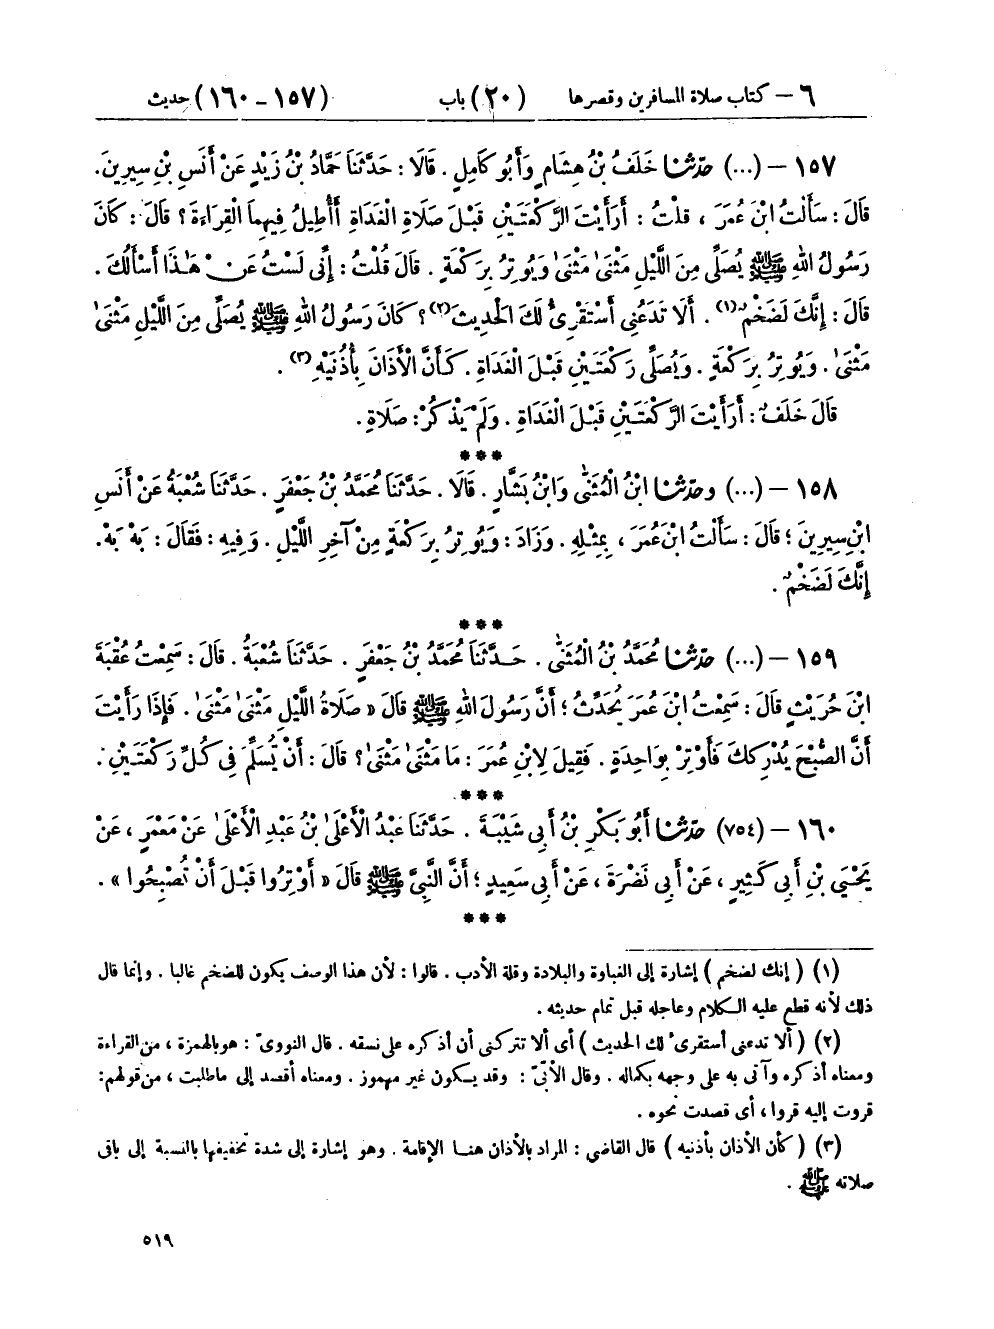 ٦ – كتاب صلاة المسافرين وقصرها (٢٠) باب (١٥٧ – ١٦٠) حديث
١٥٧ – (...) حدّثنا خَلَفُ بْنُ هِشَامٍ وَأَبُو كَامِلٍ . قَالَا : حَدَّثَنَا حَمَّادُ بْنُ زَيْدٍ عَنْ أَنَسِ بْنِ سِيرِينَ.
قَالَ : سَأَلْتُ ابْنَ عُمَرَ ، قُلْتُ : أَرَأَيْتَ الرَّكْعَتَيْنِ قَبْلَ صَلَاةِ الْغَدَاةِ أَأُطِيلُ فِيهِمَا الْقِرَاءَةَ ؟ قَالَ : كَانَ
رَسُولُ اللهِ ﷺ يُصَلِّى مِنَ اللَّيْلِ مَثْنَىٰ مَثْنَىٰ وَيُوتِرُ بِرَكْعَةٍ . قَالَ قُلْتُ : إِنِّى لَسْتُ عَنْ هَٰذَا أَسْأَلُكَ .
قَالَ : إِنَّكَ لَضَخْمٌ(١) . أَلَا تَدَعُنِى أَسْتَقْرِئُ لَكَ الْحَدِيثَ(٢) ؟ كَانَ رَسُولُ اللهِ ﷺ يُصَلِّى مِنَ اللَّيْلِ مَثْنَىٰ
مَثْنَىٰ . وَيُوتِرُ بِرَكْعَةٍ . وَيُصَلِّى رَكْعَتَيْنِ قَبْلَ الْغَدَاةِ . كَأَنَّ الْأَذَانَ بِأُذُنَيْهِ(٣) .
قَالَ خَلَفٌ : أَرَأَيْتَ الرَّكْعَتَيْنِ قَبْلَ الْغَدَاةِ . وَلَمْ يَذْكُرْ : صَلَاةِ .
***
١٥٨ – (...) وحدّثنا ابْنُ الْمُثَنَّىٰ وَابْنُ بَشَّارٍ . قَالَا . حَدَّثَنَا مُحَمَّدُ بْنُ جَعْفَرٍ . حَدَّثَنَا شُعْبَةُ عَنْ أَنَسِ
ابْنِ سِيرِينَ ؛ قَالَ : سَأَلْتُ ابْنَ عُمَرَ ، بِمِثْلِهِ . وَزَادَ : وَيُوتِرُ بِرَكْعَةٍ مِنْ آخِرِ اللَّيْلِ . وَفِيهِ : فَقَالَ : بَهْ بَهْ.
إِنَّكَ لَضَخْمٌ .
***
١٥٩ – (...) حدّثنا مُحَمَّدُ بْنُ الْمُثَنَّىٰ . حَدَّثَنَا مُحَمَّدُ بْنُ جَعْفَرٍ . حَدَّثَنَا شُعْبَةُ . قَالَ : سَمِعْتُ عُقْبَةَ
ابْنَ حُرَيْثٍ قَالَ : سَمِعْتُ ابْنَ عُمَرَ يُحَدِّثُ ؛ أَنَّ رَسُولَ اللهِ ﷺ قَالَ « صَلَاةُ اللَّيْلِ مَثْنَىٰ مَثْنَىٰ . فَإِذَا رَأَيْتَ
أَنَّ الصُّبْحَ يُدْرِكُكَ فَأَوْتِرْ بِوَاحِدَةٍ . فَقِيلَ لِابْنِ عُمَرَ : مَا مَثْنَىٰ مَثْنَىٰ ؟ قَالَ : أَنْ تُسَلِّمَ فِى كُلِّ رَكْعَتَيْنِ .
***
١٦٠ – (٧٥٤) حدّثنا أَبُو بَكْرِ بْنُ أَبِى شَيْبَةَ . حَدَّثَنَا عَبْدُ الْأَعْلَىٰ بْنُ عَبْدِ الْأَعْلَىٰ عَنْ مَعْمَرٍ ، عَنْ
يَحْيَىٰ بْنِ أَبِى كَثِيرٍ ، عَنْ أَبِى نَضْرَةَ ، عَنْ أَبِى سَعِيدٍ ؛ أَنَّ النَّبِىَّ ﷺ قَالَ « أَوْتِرُوا قَبْلَ أَنْ تُصْبِحُوا » .
***
(١) ( إنك لضخم ) إشارة إلى الغباوة والبلادة وقلة الأدب . قالوا : لأن هذا الوصف يكون للضخم غالبا . وإنما قال
ذلك لأنه قطع عليه الكلام وعاجله قبل تمام حديثه .
(٢) ( ألا تدعنى أستقرئ لك الحديث ) أى ألا تتركنى أن أذكره على نسقه . قال النووىّ : هو بالهمزة ، من القراءة
ومعناه أذكره وآتى به على وجهه بكماله . وقال الأبّىّ : وقد يسكون غير مهموز . ومعناه أقصد إلى ماطلبت ، من قولهم:
قروت إليه قروا ، أى قصدت نحوه .
(٣) ( كأن الأذان بأذنيه ) قال القاضى : المراد بالأذان هنا الإقامة . وهو إشارة إلى شدة تخفيفها بالنسبة إلى باقى
صلاته ﷺ .
٥١٩